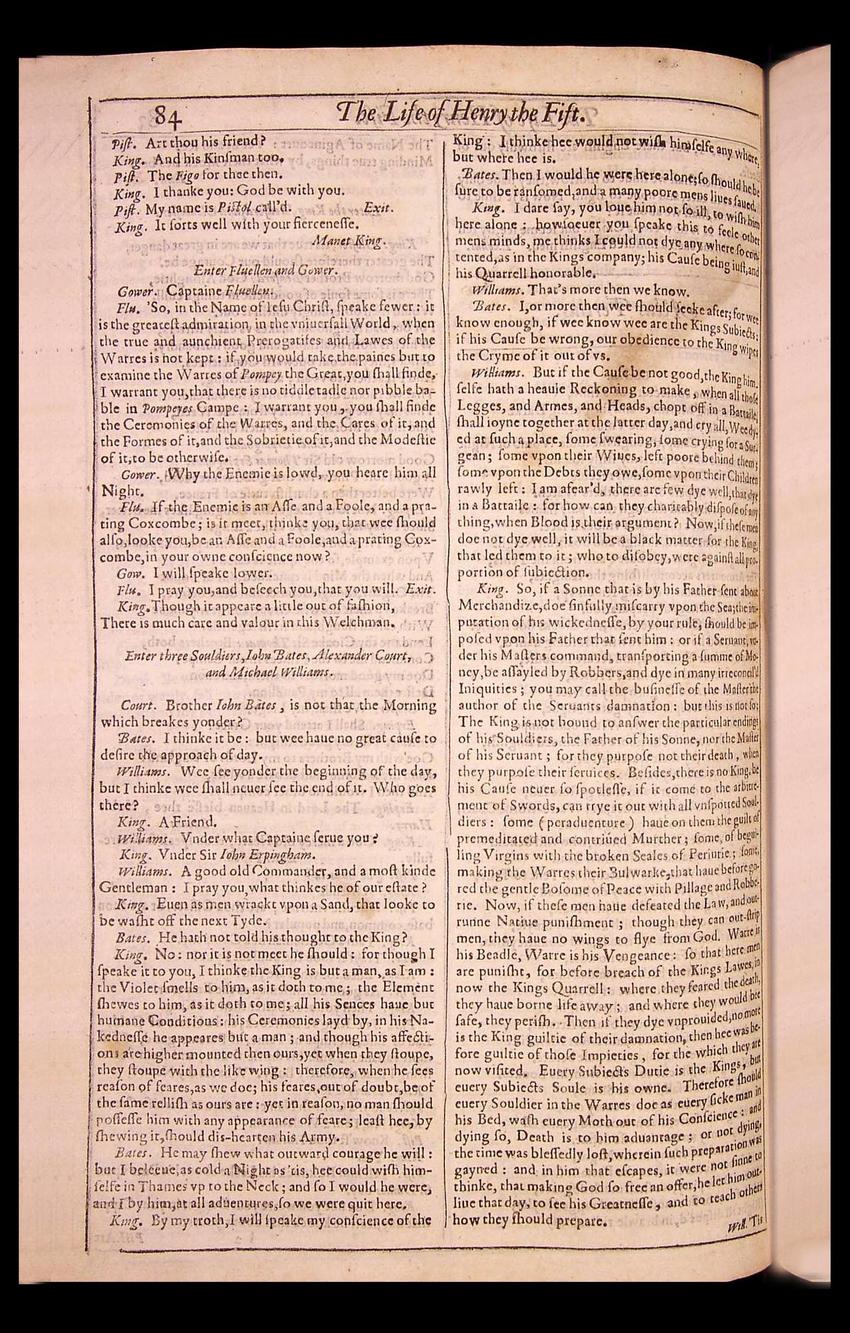 84
The Life of Henry the Fift.
Pist. Art thou his friend?
King. And his Kinſman too.
Pist. The Figo for thee then.
King. I thanke you: God be with you.
Pist. My name is Pistol call'd. Exit.
King. It ſorts well with your fierceneſſe.
Manet King.
Enter Fluellen and Gower.
Gower. Captaine Fluellen.
Flu. 'So, in the Name of Ieſu Chriſt, ſpeake fewer: it
is the greateſt admiration in the vniuerſall World, when
the true and aunchient Prerogatifes and Lawes of the
Warres is not kept: if you would take the paines but to
examine the Warres of Pompey the Great, you ſhall finde,
I warrant you, that there is no tiddle tadle nor pibble ba-
ble in Pompeyes Campe: I warrant you, you ſhall finde
the Ceremonies of the Warres, and the Cares of it, and
the Formes of it, and the Sobrietie of it, and the Modeſtie
of it, to be otherwiſe.
Gower. Why the Enemie is lowd, you heare him all
Night.
Flu. If the Enemie is an Aſſe and a Foole, and a pra-
ting Coxcombe; is it meet, thinke you, that wee ſhould
alſo, looke you, be an Aſſe and a Foole, and a prating Cox-
combe, in your owne conſcience now?
Gow. I will ſpeake lower.
Flu. I pray you, and beſeech you, that you will. Exit.
King. Though it appeare a little out of faſhion,
There is much care and valour in this Welchman.
Enter three Souldiers, Iohn Bates, Alexander Court,
and Michael Williams.
Court. Brother Iohn Bates, is not that the Morning
which breakes yonder?
Bates. I thinke it be: but wee haue no great cauſe to
deſire the approach of day.
Williams. Wee ſee yonder the beginning of the day,
but I thinke wee ſhall neuer ſee the end of it. Who goes
there?
King. A Friend.
Williams. Vnder what Captaine ſerue you?
King. Vnder Sir Iohn Erpingham.
Williams. A good old Commander, and a moſt kinde
Gentleman: I pray you, what thinkes he of our eſtate?
King. Euen as men wrackt vpon a Sand, that looke to
be waſht off the next Tyde.
Bates. He hath not told his thought to the King?
King. No: nor it is not meet he ſhould: for though I
ſpeake it to you, I thinke the King is but a man, as I am:
the Violet ſmells to him, as it doth to me; the Element
ſhewes to him, as it doth to me; all his Sences haue but
humane Conditions: his Ceremonies layd by, in his Na-
kedneſſe he appeares but a man; and though his affecti-
ons are higher mounted then ours, yet when they ſtoupe,
they ſtoupe with the like wing: therefore, when he ſees
reaſon of feares, as we doe; his feares, out of doubt, be of
the ſame relliſh as ours are: yet in reaſon, no man ſhould
poſſeſſe him with any appearance of feare; leaſt hee, by
ſhewing it, ſhould dis-hearten his Army.
Bates. He may ſhew what outward courage he will:
but I beleeue, as cold a Night as 'tis, hee could wiſh him-
ſelfe in Thames vp to the Neck; and ſo I would he were,
and I by him, at all aduentures, ſo we were quit here.
King. By my troth, I will ſpeake my conſcience of the
King: I thinke hee would not wiſh himſelfe any where,
but where hee is.
Bates. Then I would he were here alone; ſo ſhould he be
ſure to be ranſomed, and a many poore mens liues ſaued.
King. I dare ſay, you loue him not ſo ill, to wiſh him
here alone: howſoeuer you ſpeake this to feele other
mens minds, me thinks I could not dye any where ſo con-
tented, as in the Kings company; his Cauſe being iuſt, and
his Quarrell honorable.
Williams. That's more then we know.
Bates. I, or more then wee ſhould ſeeke after; for wee
know enough, if wee know wee are the Kings Subiects:
if his Cauſe be wrong, our obedience to the King wipes
the Cryme of it out of vs.
Williams. But if the Cauſe be not good, the King him-
ſelfe hath a heauie Reckoning to make, when all thoſe
Legges, and Armes, and Heads, chopt off in a Battaile,
ſhall ioyne together at the latter day, and cry all, Wee dy-
ed at ſuch a place, ſome ſwearing, ſome crying for a Sur-
gean; ſome vpon their Wiues, left poore behind them;
ſome vpon the Debts they owe, ſome vpon their Children
rawly left: I am afear'd, there are few dye well, that dye
in a Battaile: for how can they charitably diſpoſe of any
thing, when Blood is their argument? Now, if theſe men
doe not dye well, it will be a black matter for the King,
that led them to it; who to diſobey, were againſt all pro-
portion of ſubiection.
King. So, if a Sonne that is by his Father ſent about
Merchandize, doe ſinfully miſcarry vpon the Sea; the im-
putation of his wickedneſſe, by your rule, ſhould be im-
poſed vpon his Father that ſent him: or if a Seruant, vn-
der his Maſters command, tranſporting a ſumme of Mo-
ney, be aſſayled by Robbers, and dye in many irreconcil'd
Iniquities; you may call the buſineſſe of the Maſter the
author of the Seruants damnation: but this is not ſo:
The King is not bound to anſwer the particular endings
of his Souldiers, the Father of his Sonne, nor the Maſter
of his Seruant; for they purpoſe not their death, when
they purpoſe their ſeruices. Beſides, there is no King, be
his Cauſe neuer ſo ſpotleſſe, if it come to the arbitre-
ment of Swords, can trye it out with all vnſpotted Soul-
diers: ſome (peraduenture) haue on them the guilt of
premeditated and contriued Murther; ſome, of begui-
ling Virgins with the broken Seales of Periurie; ſome,
making the Warres their Bulwarke, that haue before go-
red the gentle Boſome of Peace with Pillage and Robbe-
rie. Now, if theſe men haue defeated the Law, and out-
runne Natiue puniſhment; though they can out-ſtrip
men, they haue no wings to flye from God. Warre is
his Beadle, Warre is his Vengeance: ſo that here men
are puniſht, for before breach of the Kings Lawes, in
now the Kings Quarrell: where they feared the death,
they haue borne life away; and where they would bee
ſafe, they periſh. Then if they dye vnprouided, no more
is the King guiltie of their damnation, then hee was be-
fore guiltie of thoſe Impieties, for the which they are
now viſited. Euery Subiects Dutie is the Kings, but
euery Subiects Soule is his owne. Therefore ſhould
euery Souldier in the Warres doe as euery ſicke man in
his Bed, waſh euery Moth out of his Conſcience: and
dying ſo, Death is to him aduantage; or not dying,
the time was bleſſedly loſt, wherein ſuch preparation was
gayned: and in him that eſcapes, it were not ſinne to
thinke, that making God ſo free an offer, he let him out-
liue that day, to ſee his Greatneſſe, and to teach others
how they ſhould prepare.
Will. 'Tis